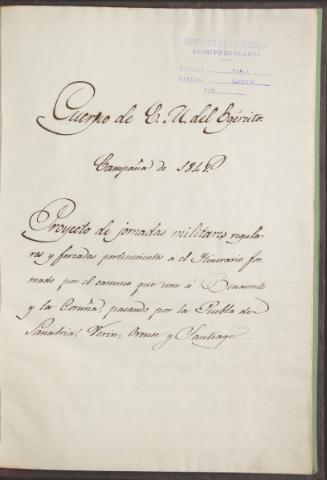 DEPOSITO DE LA GUERRA
ARCHIVO DE PLANOS
ESTANTE TABLA
CARTERA DIVISION
NUM.
Cuerpo de E. M. del Egército.
Campaña de 1848.
Proyecto de jornadas militares regula-
res y forzadas pertenecientes á el Itinerario for-
mado por el camino que une á Benavente
y la Coruña, pasando por la Puebla de
Sanabria, Verin, Orense y Santiago